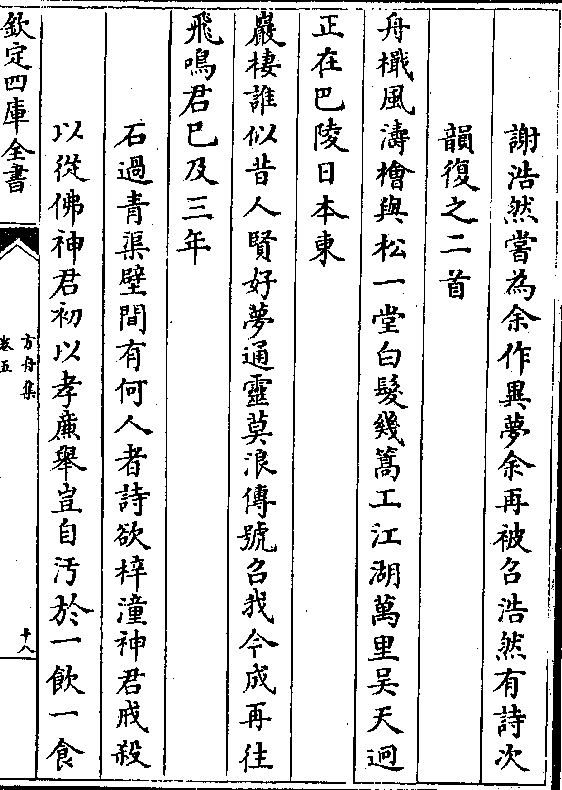 謝浩然嘗為余作異夢余再被召浩然有詩次
韻復之二首
舟檝風濤檜與松一堂白髮幾篙工江湖萬里吴天迥
正在巴陵日本東
巖棲誰似昔人賢好夢通靈莫浪傳號召我今成再往
飛鳴君已及三年
石過青渠壁間有何人者詩欲梓潼神君戒殺
以從佛神君初以孝廉舉豈自汚於一飲一食
欽定四庫全書
方舟集
卷五
十八